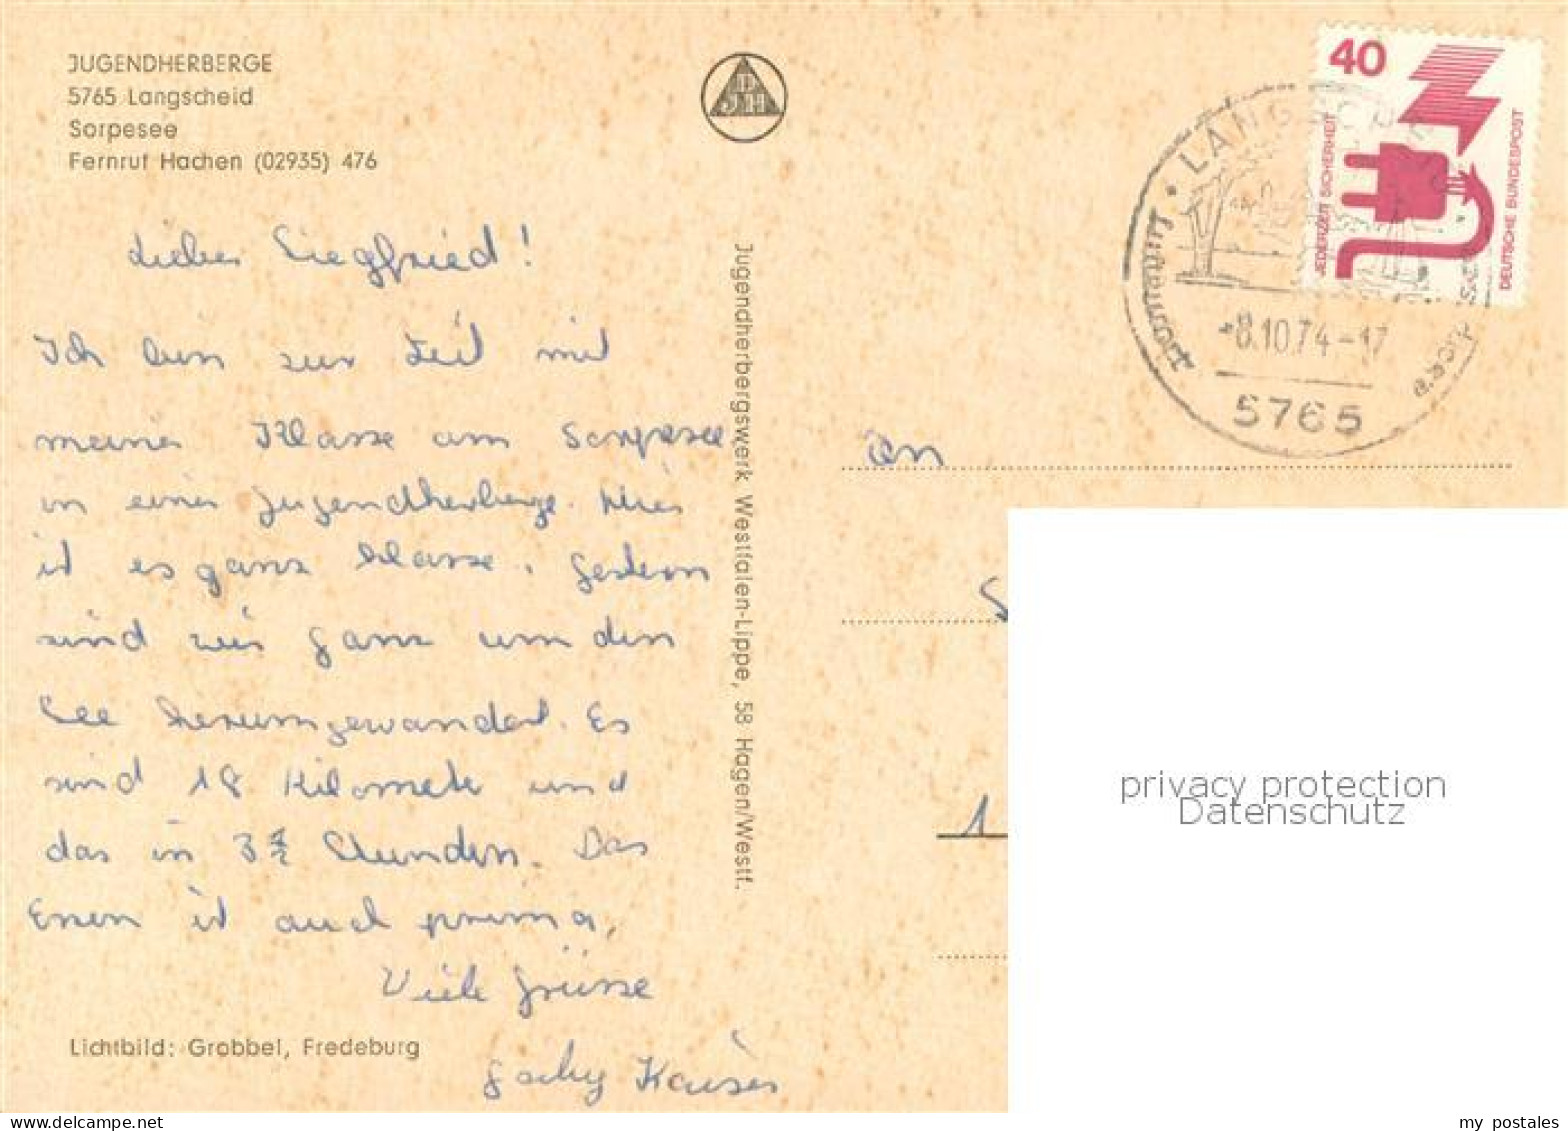 JUGENDHERBERGE
5765 Langscheid
Sorpesee
Fernruf Hachen (02935) 476
DJH
Lieber Siegfried!
Ich bin zur Zeit mit
meiner Klasse am Sorpesee
in einer Jugendherberge. Hier
ist es ganz klasse. Gestern
sind wir ganz um den
See herumgewandert. Es
sind 18 Kilometer und
das in 3 1/2 Stunden. Das
Essen ist auch prima.
Viele Grüsse
Gaby Kaiser
Lichtbild: Grobbel, Fredeburg
Jugendherbergswerk Westfalen-Lippe, 58 Hagen/Westf.
40
JEDERZEIT SICHERHEIT
DEUTSCHE BUNDESPOST
LANGSCHEID
-8.10.74-17
5765
An
S
1
privacy protection
Datenschutz
www.delcampe.net
my_postales